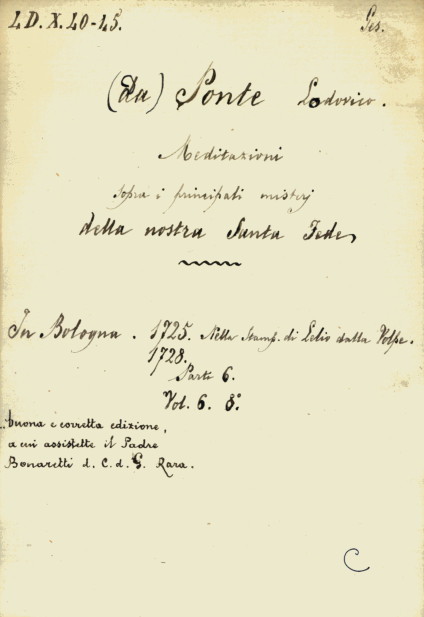 LD.X.40-45.
Ges.
(da) Ponte Lodovico.
Meditazioni
sopra i principali misterj
della nostra Santa Fede
In Bologna. 1725. Nella Stamp. di Lelio dalla Volpe.
1728.
Parti 6.
Vol. 6. 8º
buona e corretta edizione,
a cui assistette il Padre
Bonaretti d. C. d. G. Rara.
C